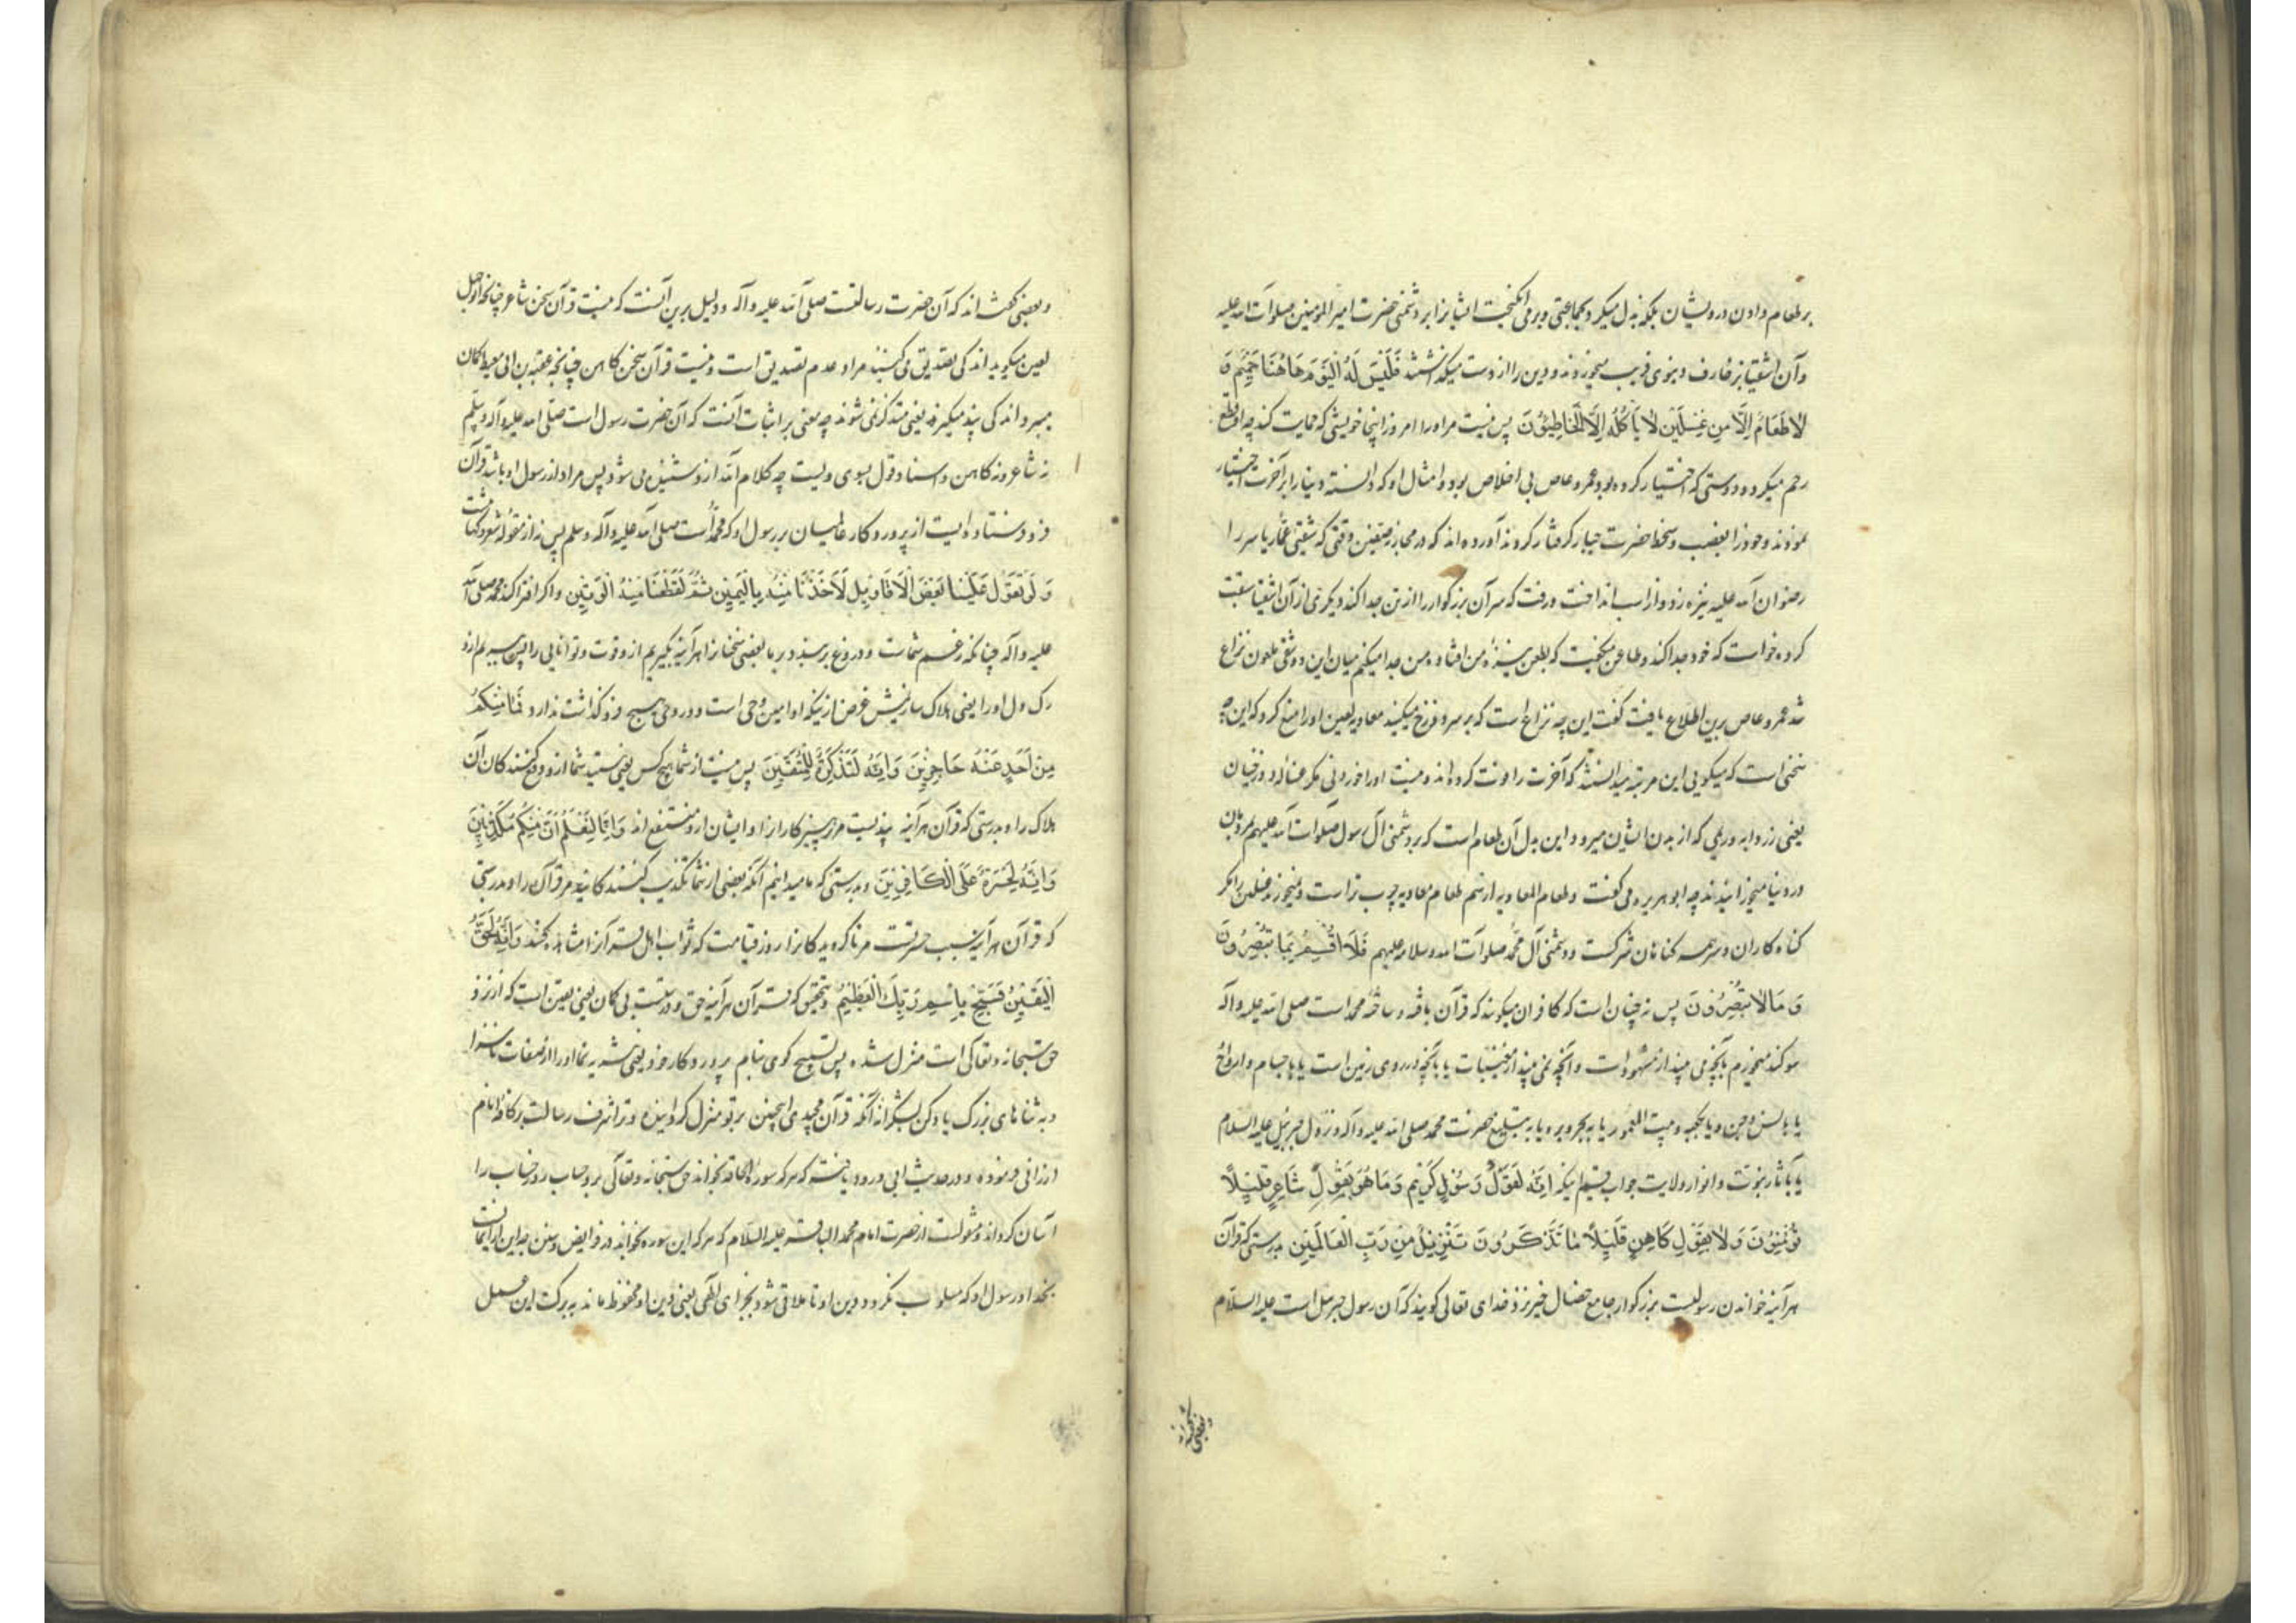 بر طعام دادن درویشان بلکه بذل میکرد بجماعتی و برمی انگیخت ایشانرا بر دشمنی حضرت امیر المومنین صلوات الله علیه
و آن اشقیا بزخارف دنیوی فریب میخوردند و دین را از دست میگذاشتند فَلَيْسَ لَهُ الْيَوْمَ هَاهُنَا حَمِيمٌ وَ
لَا طَعَامٌ إِلَّا مِنْ غِسْلِينٍ لَا يَأْكُلُهُ إِلَّا الْخَاطِئُونَ پس نیست مر او را امروز اینجا خویشی که حمایت کند چه او قطع
رحم میکرد و دوستی که اختیار کرده بود عمرو عاص بی اخلاص بود و امثال او که دانسته دنیا را بر آخرت اختیار
نمودند و خود را بغضب و سخط حضرت جبار گرفتار کردند آورده اند که در محاربه صفین وقتی که شقیی عمار یاسر را
رضوان الله علیه نیزه زد و از اسب انداخت و رفت که سر آن بزرگوار را از تن جدا کند دیگری از آن اشقیا سبقت
کرده خواست که خود جدا کند و طاعن میگفت که بطعن نیزهٔ من افتاده من جدا میکنم میان این دو شقی ملعون نزاع
شد عمرو عاص برین اطلاع یافت گفت این چه نزاع است که بر سر دوزخ میکنید معاویه لعین او را منع کرد که این چه
سخنی است که میگویی این مرتبه میدانستند که آخرت را فوت کرده اند و نیست او را خوردنی مگر غساله دوزخیان
یعنی زردابه و ریمی که از بدن ایشان میرود و این بدل آن طعام است که بر دشمنی آل رسول صلوات الله علیهم بمردمان
در دنیا میخورانیدند چه ابو هریره می گفت و طعام المعاویه ادسم طعام معاویه چرب تر است و نمیخورند غسلین را مگر
گناه کاران و سر همه گناهان شرکست و دشمنی آل محمد صلوات الله و سلامه علیهم فَلَا أُقْسِمُ بِمَا تُبْصِرُونَ
وَمَا لَا تُبْصِرُونَ پس نه چنان است که کافران میگویند که قرآن بافته و ساخته محمد است صلی الله علیه و آله
سوگند میخورم بآنچه می بینید از مشهودات و آنچه نمی بینید از مغیبات یا بآنچه در روی زمین است یا باجسام و ارواح
یا بانس و جن و یا بکعبه و بیت المعمور یا به بحر و بر و یا به تبلیغ حضرت محمد صلی الله علیه و آله و نزول جبرئیل علیه السلام
یا بآثار نبوت و انوار ولایت جواب قسم اینکه إِنَّهُ لَقَوْلُ رَسُولٍ كَرِيمٍ وَمَا هُوَ بِقَوْلِ شَاعِرٍ قَلِيلًا
تُؤْمِنُونَ وَلَا بِقَوْلِ كَاهِنٍ قَلِيلًا مَا تَذَكَّرُونَ تَنْزِيلٌ مِنْ رَبِّ الْعَالَمِينَ بدرستی که قرآن
هر آینه خواندن رسولیست بزرگوار جامع خصال خیر نزد خدای تعالی گویند که آن رسول جبرئیل است علیه السلام
و بعضی گفته اند
و بعضی گفته اند که آن حضرت رسالتست صلی الله علیه و آله و دلیل برین آنست که نیست قرآن سخن شاعر چنانچه ابو جهل
لعین میگوید اندکی تصدیق می کنند مراد عدم تصدیق است و نیست قرآن سخن کاهن چنانچه عقبه بن ابی معیط گمان
میبرد اندکی پند میگیرند یعنی متذکر نمی شوند چه معنی بر اثبات آنست که آن حضرت رسول است صلی الله علیه و آله و سلم
نه شاعر و نه کاهن و اسناد قول بسوی ویست چه کلام الله از و شنیده می شود پس مراد از رسول او باشد قرآن
فرو فرستاده ایست از پروردگار عالمیان بر رسول او که محمد است صلی الله علیه و آله و سلم پس نه از مقوله شعر و کهانت است
وَلَوْ تَقَوَّلَ عَلَيْنَا بَعْضَ الْأَقَاوِيلِ لَأَخَذْنَا مِنْهُ بِالْيَمِينِ ثُمَّ لَقَطَعْنَا مِنْهُ الْوَتِينَ و اگر افترا کند محمد صلی الله
علیه و آله چنانکه زعم شماست و دروغ بربندد بر ما بعضی سخنانرا هر آینه بگیریم از و قوت و توانایی را پس ببریم ازو
رگ دل او را یعنی هلاک سازیمش غرض ازینکه او امین وحی است و در وحی هیچ فرو گذاشت ندارد فَمَا مِنْكُمْ
مِنْ أَحَدٍ عَنْهُ حَاجِزِينَ وَإِنَّهُ لَتَذْكِرَةٌ لِلْمُتَّقِينَ پس نیست از شما هیچ کس یعنی نیستید شما از و دفع کنندکان آن
هلاک را و بدرستی که قرآن هر آینه پندیست مر پرهیز کار انرا و ایشان ازو منتفع اند وَإِنَّا لَنَعْلَمُ أَنَّ مِنْكُمْ مُكَذِّبِينَ
وَإِنَّهُ لَحَسْرَةٌ عَلَى الْكَافِرِينَ و بدرستی که ما میدانیم آنکه بعضی از شما تکذیب کنندگانید مر قرآن را و بدرستی
که قرآن هر آینه سبب حسرتست مر ناگرویدگانرا روز قیامت که ثواب اهل قرآنرا مشاهده کنند وَإِنَّهُ لَحَقُّ
الْيَقِينِ فَسَبِّحْ بِاسْمِ رَبِّكَ الْعَظِيمِ و بتحقیق که قرآن هر آینه حق و درستست بی گمان یعنی یقین است که از نزد
حق سبحانه و تعالی است منزل شده پس تسبیح گوی بنام پروردگار خود یعنی تنزیه نما او را از صفات ناسزا
و به ثناهای بزرگ یاد کن بشکرانه آنکه قرآن مجیدی اینچنین بر تو منزل گردانیده و ترا شرف رسالت بر کافه انام
ارزانی فرموده و در حدیث ابی ورود یافته که هر که سوره الحاقه بخواند حق سبحانه و تعالی بر و حساب روز حساب را
آسان گرداند و منقولست از حضرت امام محمد الباقر علیه السلام که هر که این سوره بخواند در فرایض و سنن چه این از ایمانست
بخدا و رسول او که مسلوب نگردد دین او تا ملاقی شود بجزای الهی یعنی دین او محفوظ ماند به برکت این عمل